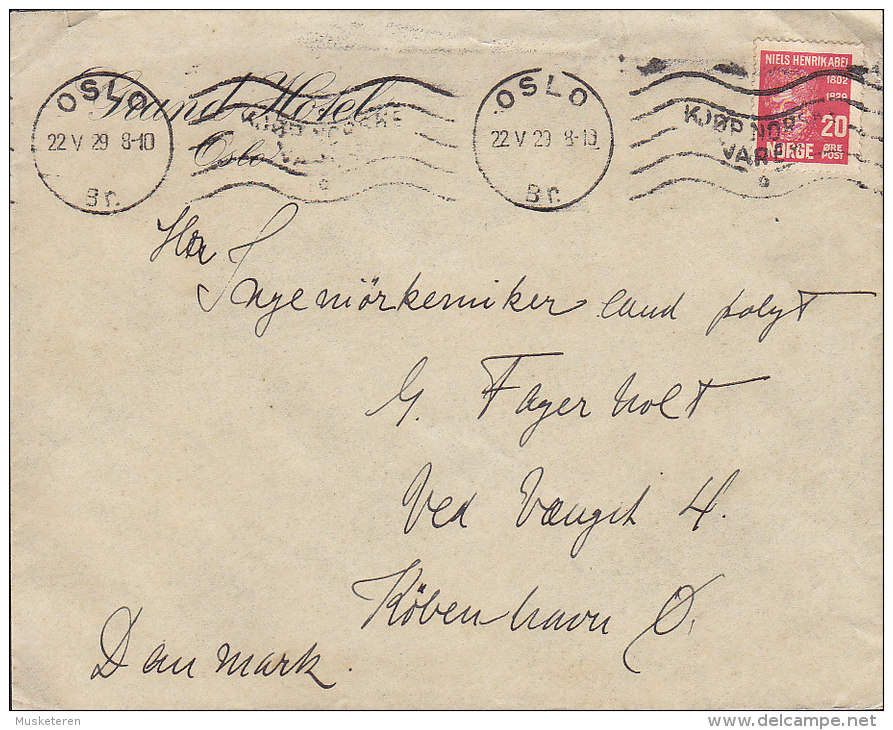 Grand Hotel
Oslo
OSLO
22 V 29 8-10
Br.
KJØP NORSKE
OSLO
22 V 29 8-10
Br.
KJØP NORSKE
VARER
NIELS HENRIK ABEL
1802
1829
20
NORGE
ØRE
POST
Hrr
Ingeniörkemiker cand polyt
G. Fagerholt
Ved Vænget 4.
Köbenhavn Ø.
Danmark.
Musketeren
delcampe.net